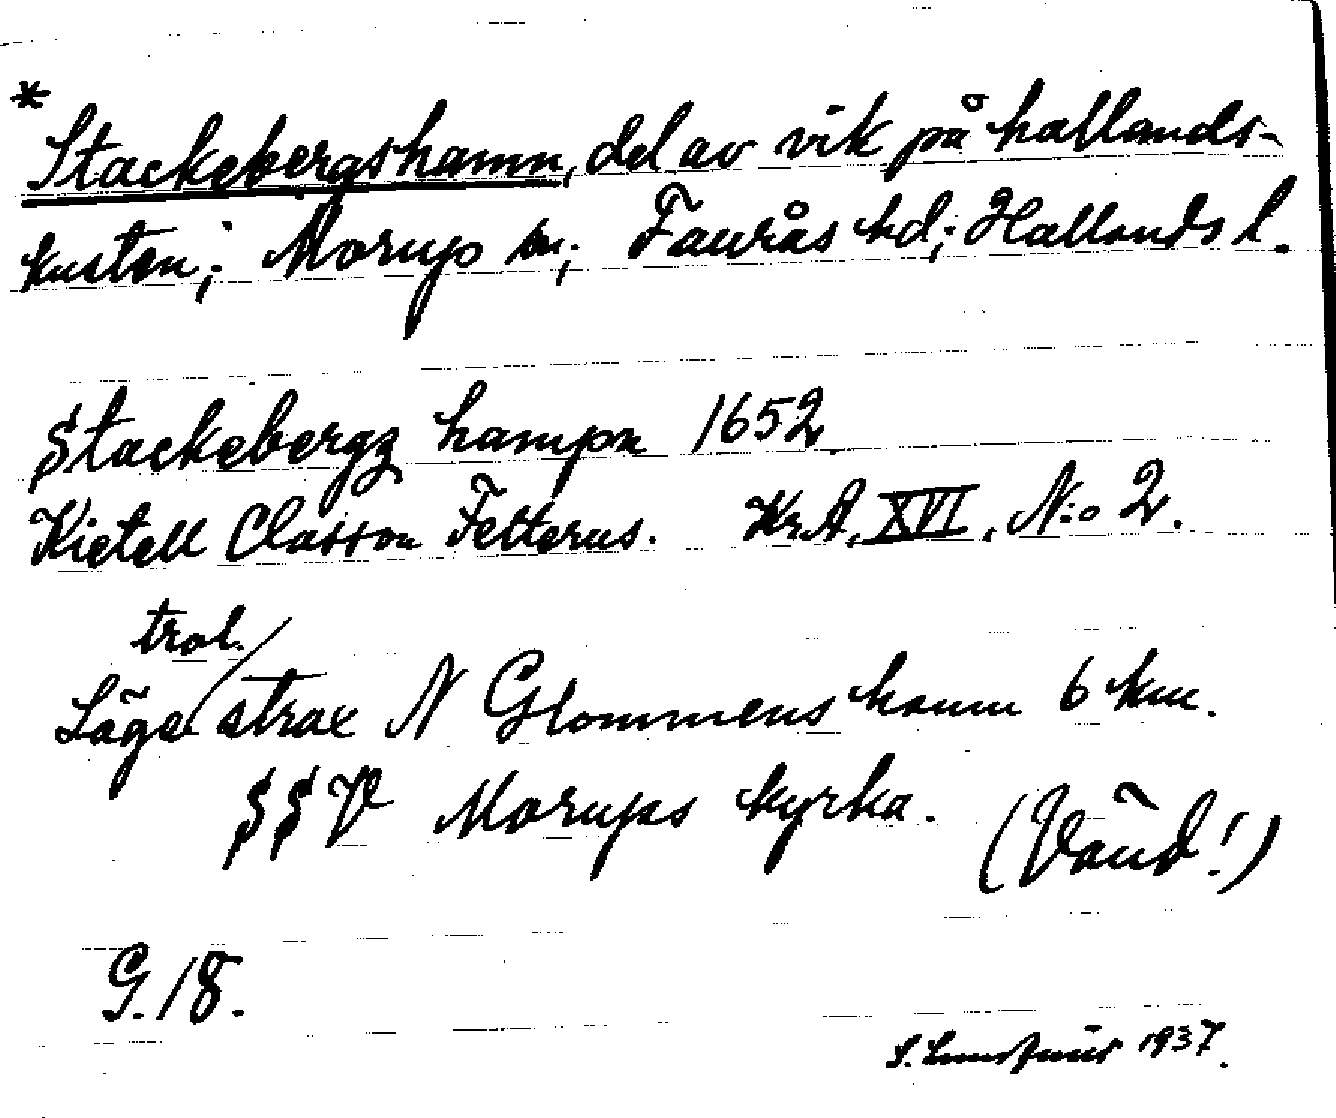 * Stackebergshamn, del av vik på hallands-
kusten; Morup sn; Faurås hd; Hallands l.
Stackebergz hampn 1652
Kietell Classon Felterus. Kr.A. XVI, N:o 2.
trol.
Läge strax N Glommens hamn 6 km.
SSV Morups kyrka. (Vänd!)
G. 18.
S. 1937.